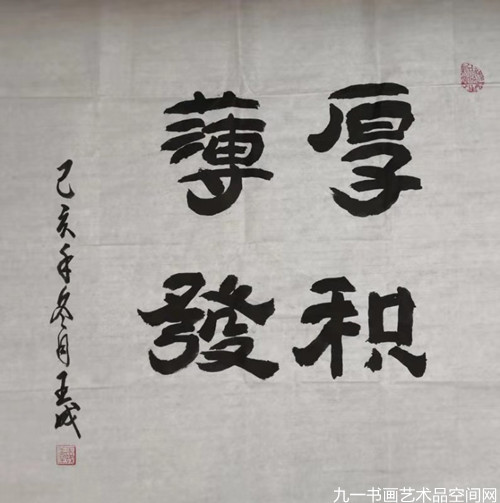 厚积
薄發
己亥年冬月王成
九一书画艺术品空间网